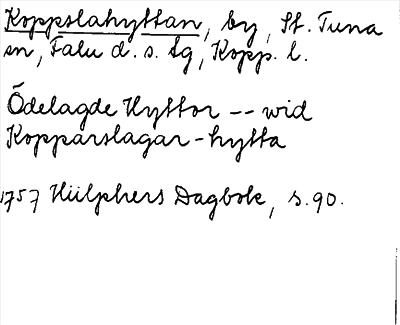 Koppslahyttan, by, St. Tuna
sn, Falu d. s. tg, Kopp. l.
Ödelagde Hyttor -- wid
Kopparslagar-hytta
1757 Hülphers Dagbok, s. 90.